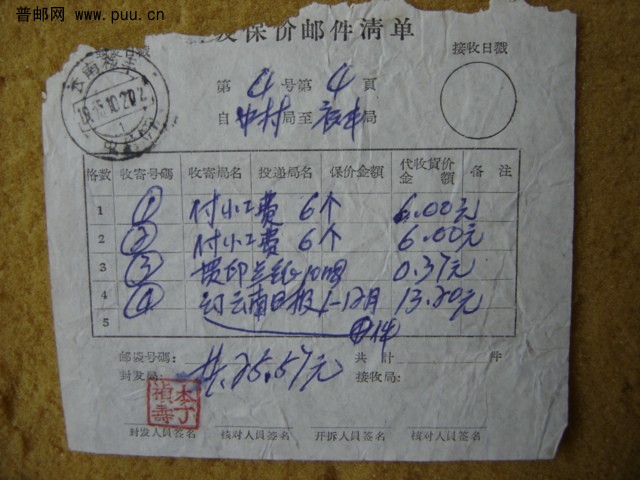 普邮网
www.puu.cn
及保价邮件清单
日戳
接收日戳
云南
第 4 号第 4 頁
自 中村 局至 辰丰 局
格数 收寄号碼 收寄局名 投递局名 保价金額 代收貨价金額 备注
1 ① 付小工费 6个 6.00元
2 ② 付小工费 6个 6.00元
3 ③ 0.37元
4 ④ 订云南日报 1-12月 13.20元
5 ④件
邮區号碼: 共計 件
共25.57元
封发局: 接收局:
李丁
禎壽
封发人員签名 核对人員签名 开拆人員签名 核对人員签名